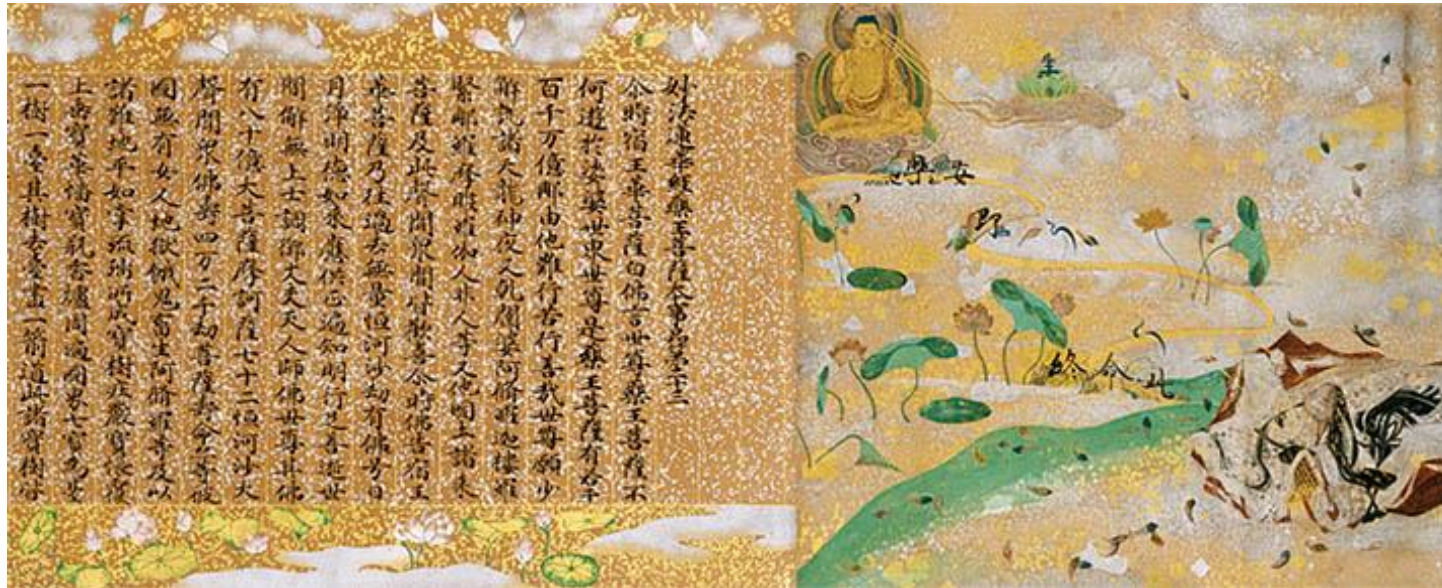 此命終
安樂
生
妙法蓮華經藥王菩薩本事品第二十三
尒時宿王華菩薩白佛言世尊藥王菩薩云
何遊於娑婆世界世尊是藥王菩薩有若干
百千万億那由他難行苦行善哉世尊願少
解說諸天龍神夜叉乾闥婆阿脩羅迦樓羅
緊那羅摩睺羅伽人非人等又他國土諸來
菩薩及此聲聞衆聞皆歡喜尒時佛告宿王
華菩薩乃往過去無量恒河沙劫有佛号日
月淨明德如來應供正遍知明行足善逝世
間解無上士調御丈夫天人師佛世尊其佛
有八十億大菩薩摩訶薩七十二恒河沙大
聲聞衆佛壽四万二千劫菩薩壽命亦等彼
國無有女人地獄餓鬼畜生阿脩羅等及以
諸難地平如掌琉璃所成寶樹莊嚴寶帳覆
上垂寶華幡寶瓶香爐周遍國界七寶為臺
一樹一臺其樹去臺盡一箭道此諸寶樹皆